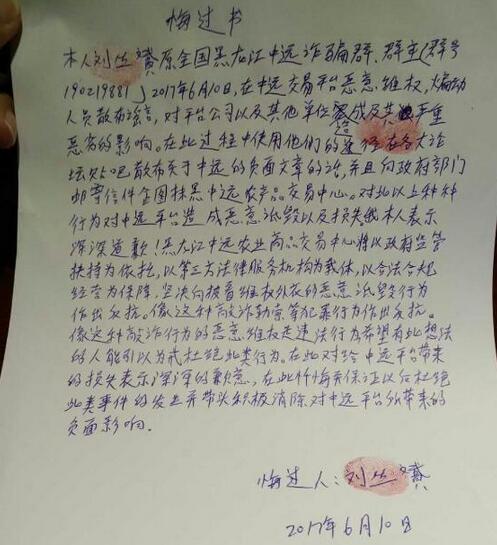 悔过书
本人刘丛赟原全国黑龙江中远诈骗群、群主(群号
190219881)2017年6月10日,在中远交易平台恶意维权,煽动
人员散布谣言,对平台公司以及其他单位造成及其严重
恶劣的影响。在此过程中使用他们的途径在各大论
坛贴吧散布关于中远的负面文章的话,并且向政府部门
邮寄信件全国抹黑中远农产品交易中心。对此以上种种
行为对中远平台造成恶意诋毁以及损失我本人表示
深深道歉,黑龙江中远农业商品交易中心将以政府监管
扶持为依托,以第三方法律服务机构为载体,以合法合规
经营为保障,坚决向披着维权外衣的恶意诋毁行为
作出反抗。像这种敲诈勒索等犯罪行为作出反抗。
像这种敲诈行为的恶意维权走违法行为希望有此想法
的人能引以为戒杜绝此类行为。在此对给中远平台带来
的损失表示深深的歉意,在此忏悔并保证以后杜绝
此类事件的发生并带头积极消除对中远平台所带来的
负面影响.
悔过人:刘丛赟
2017年6月10日